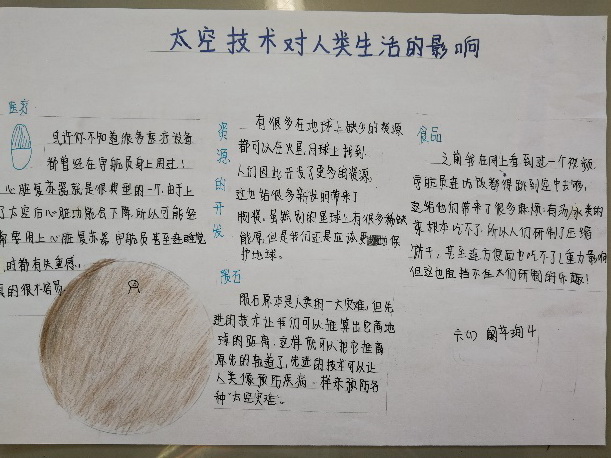 太空技术对人类生活的影响
医疗
也许你不知道很多医疗设备
都曾经在宇航员身上用过！
心脏复苏器就是很典型的一个，由于
了太空后心脏功能会下降，所以可能经
常要用上心脏复苏器，宇航员甚至连睡觉
时都有失重感，
真的很不容易
资源的开发
有很多在地球上缺少的资源
都可以在火星、月球上找到.
人们因此开发了更多的资源.
这也给很多新发明带来了
别的星球上有很多稀缺
能源，但是我们还是应该保
护地球。
陨石
陨石原本是人类的一大灾难，但先
进的技术让我们可以推算出它离地
球的距离，这样就可以把它推离
原先的轨道了，先进的技术可以让
人类像预防疾病一样来预防各
种“太空灾难”。
食品
之前我在网上看到过一个视频
宇航员连吃饭都得跳到空中去够，
这给他们带来了很多麻烦：有汤水类的
食根本吃不了，所以人们研制了压缩
饼干，甚至连方便面也吃不了（重力影响
但这也阻挡不住人们研制的乐趣！
六(1)